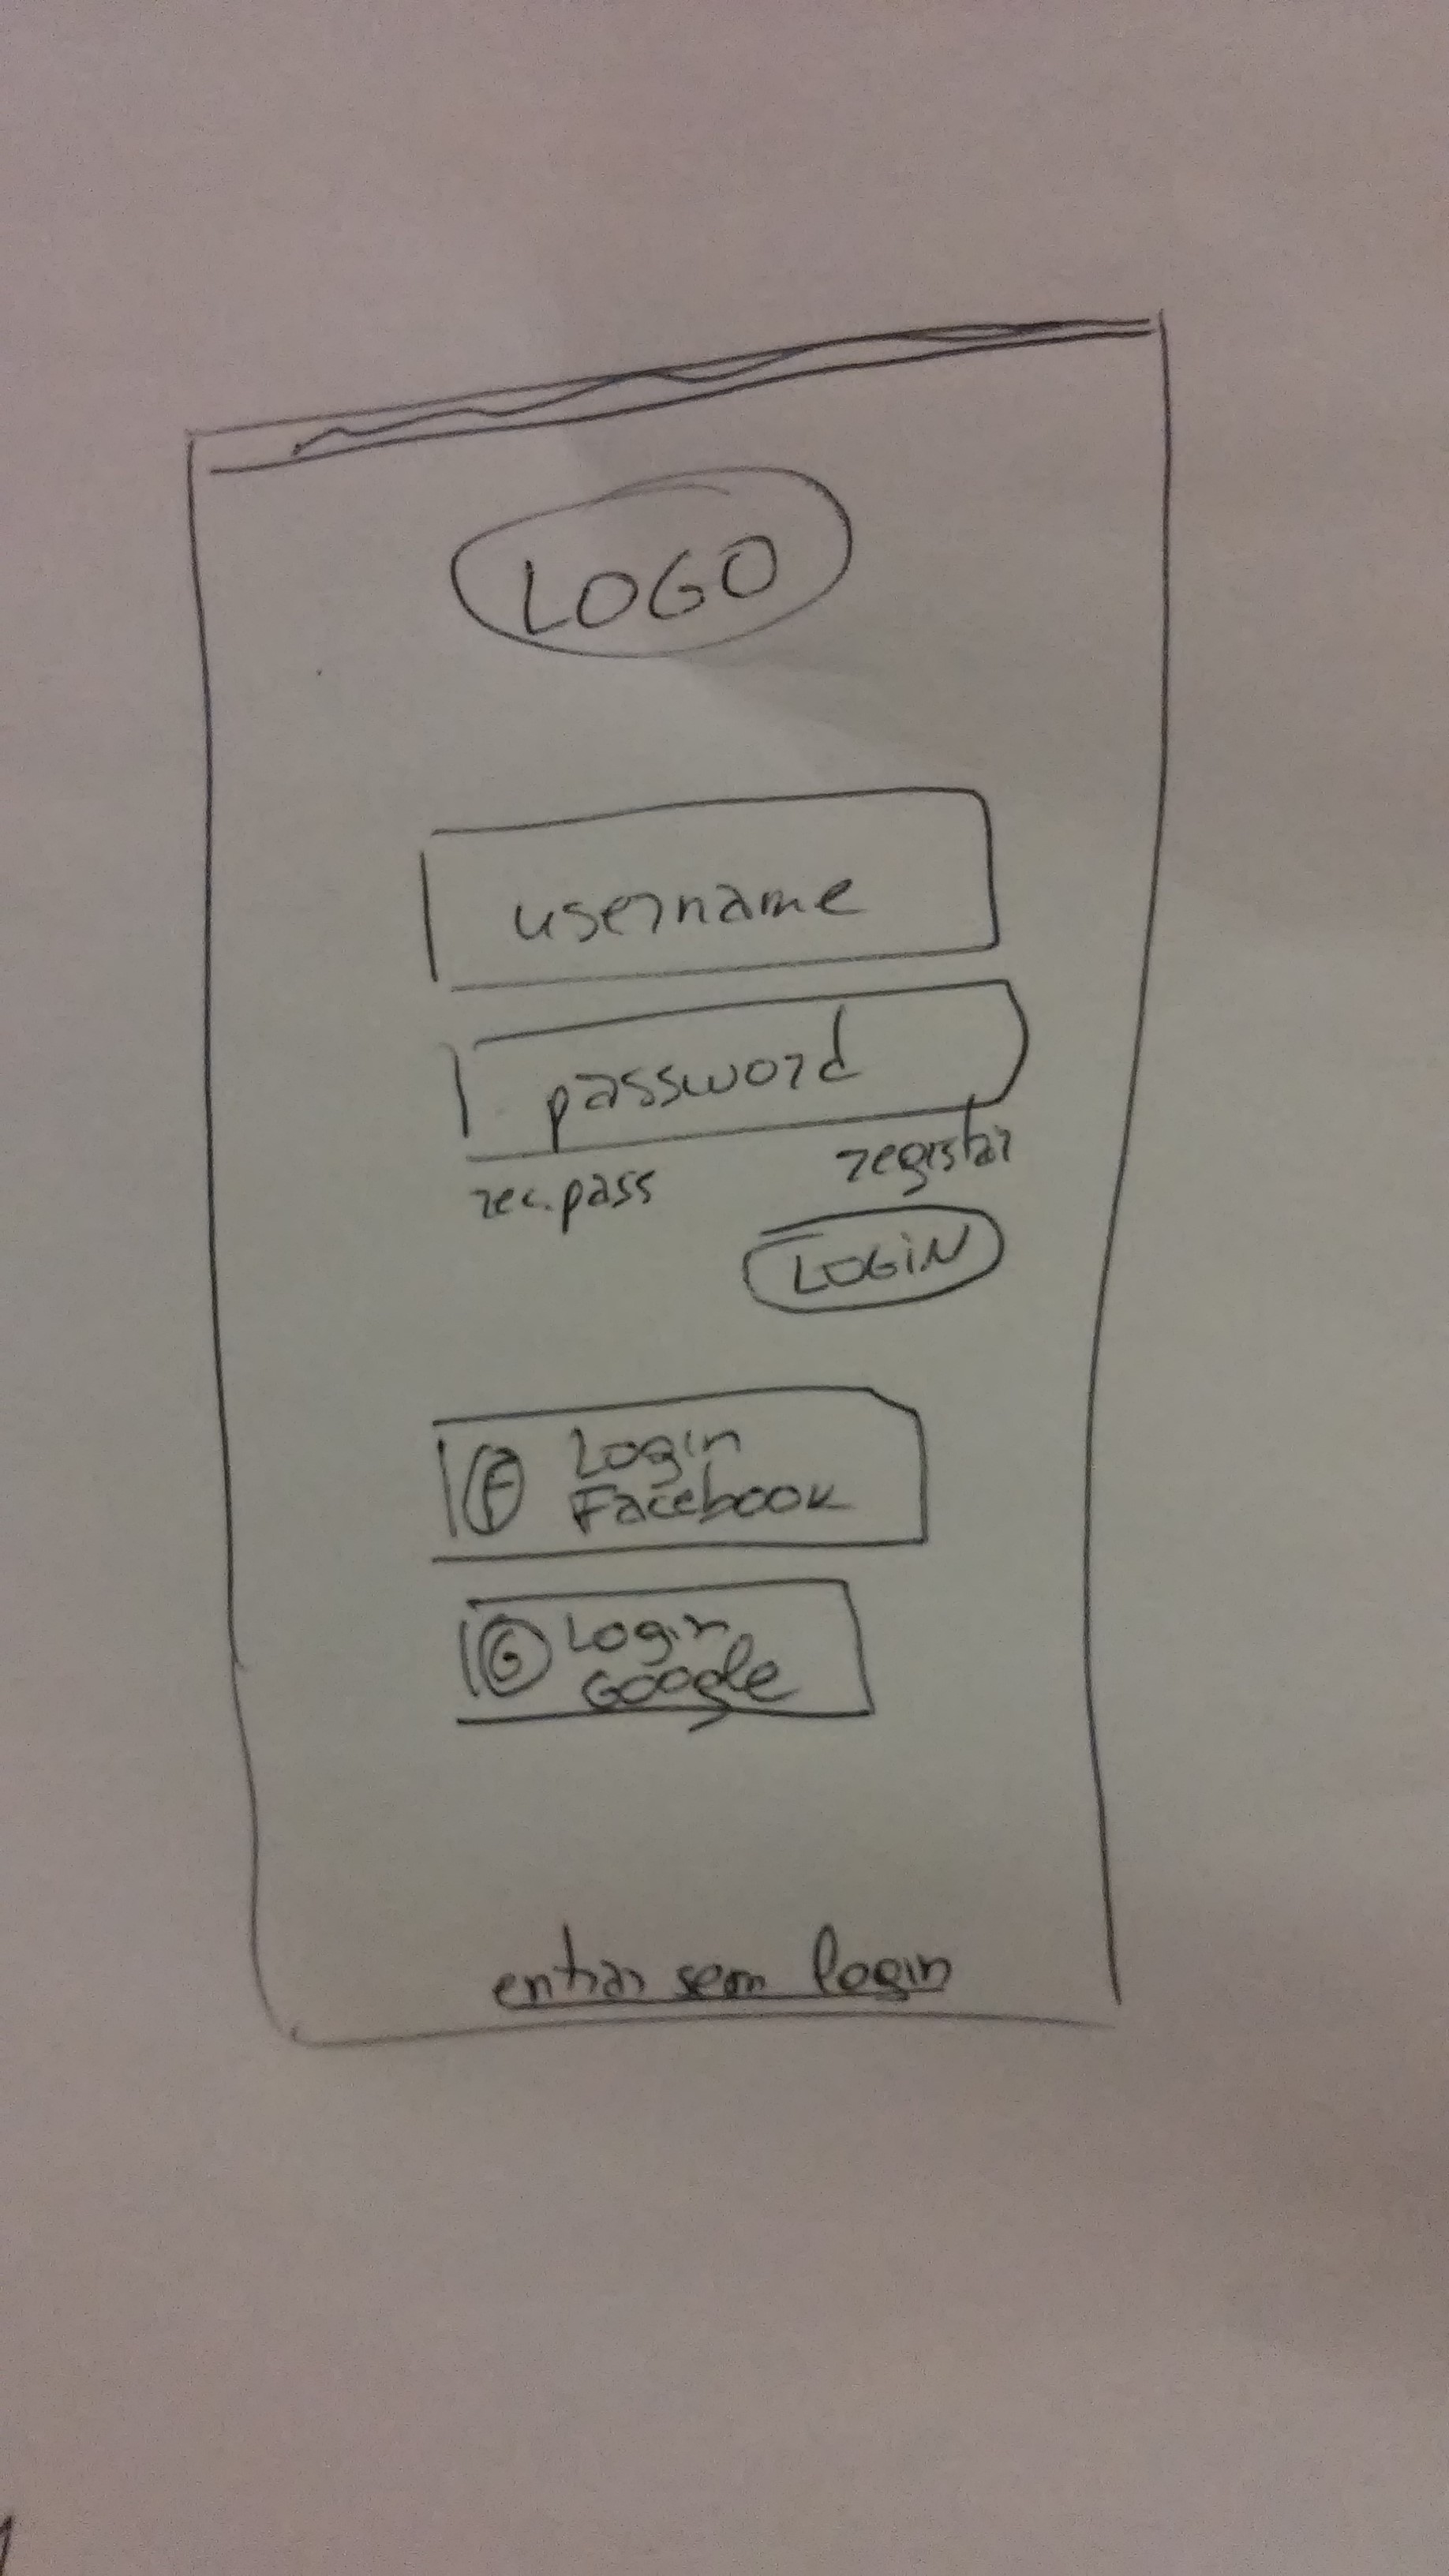 LOGO
username
password
rec.pass registar
LOGIN
F Login
Facebook
G Login
Google
entrar sem login